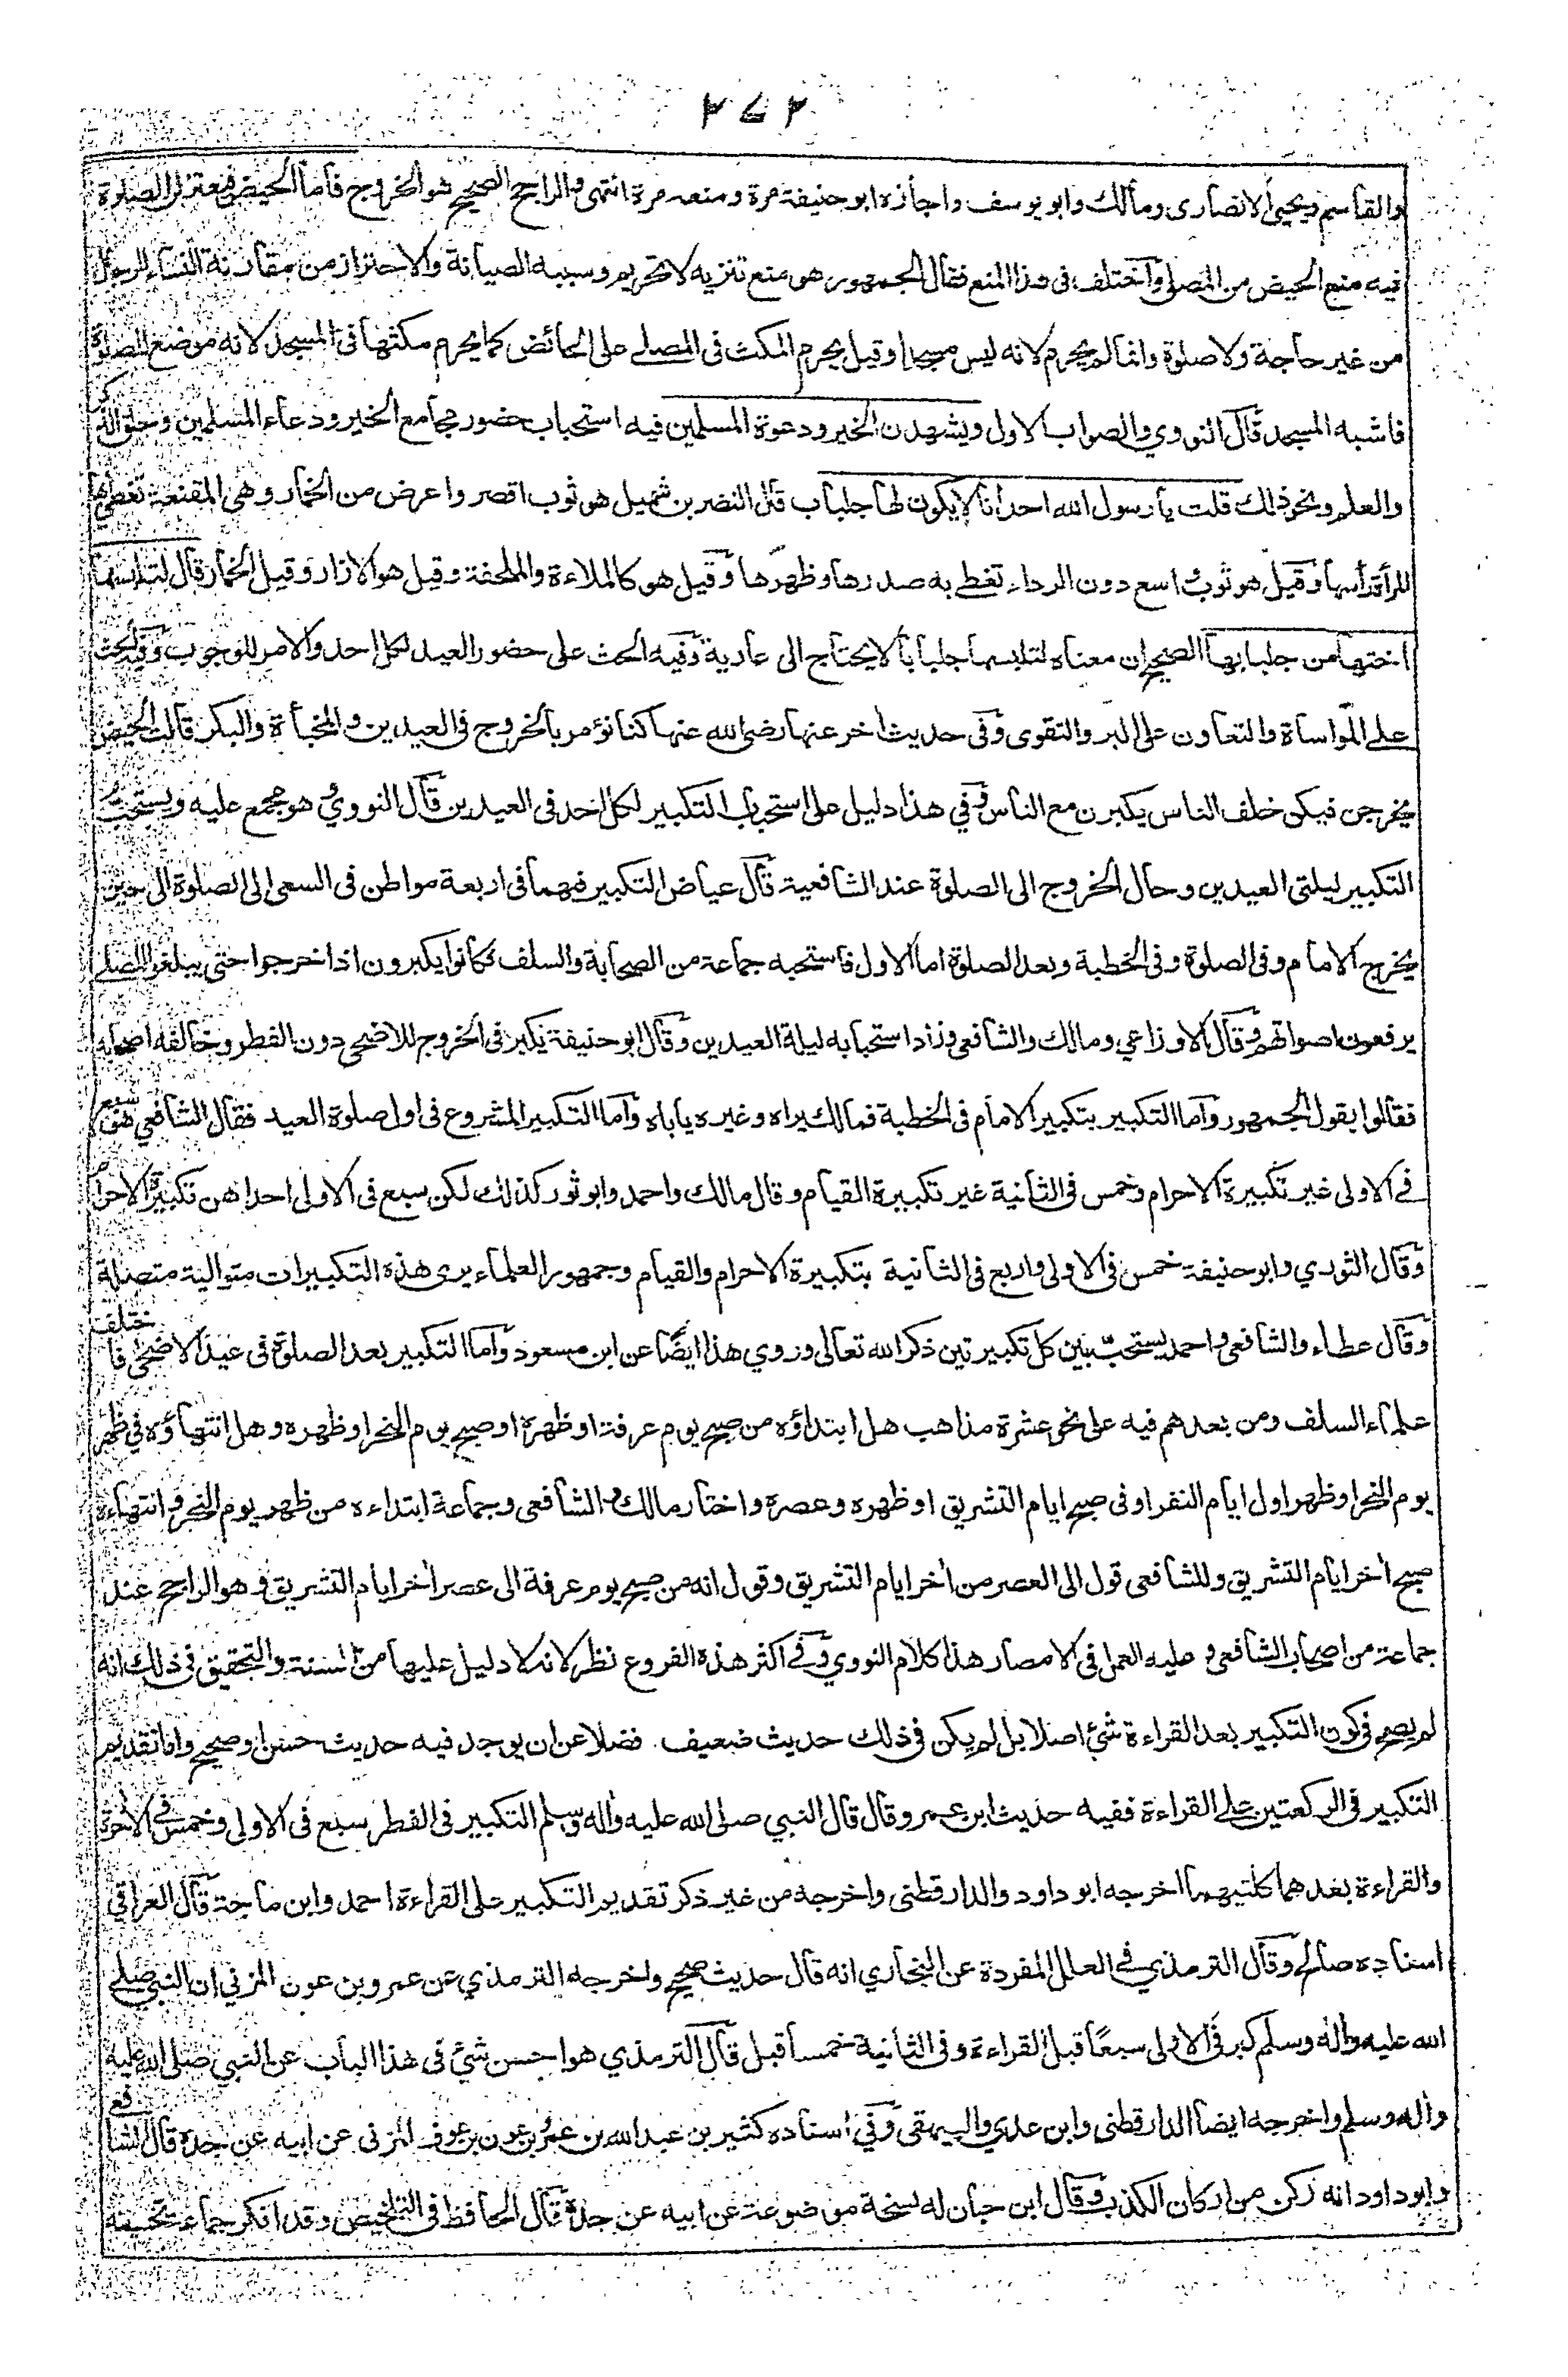 ٣٧٢
والقاسم ويحيى الانصاري ومالك وابو يوسف واجازه ابو حنيفة مرة ومنعه مرة انتهى والراجح الصحيح هو الخروج فاما الحيض فيعتزلن الصلوة
فيه منع الحيض من المصلى واختلف في هذا المنع فقال الجمهور هو منع تنزيه لا تحريم وسببه الصيانة والاحتراز من مقارنة النساء للرجال
من غير حاجة ولا صلوة وانما لم يحرم لانه ليس مسجدا وقيل يحرم المكث في المصلے على الحائض كما يحرم مكثها في المسجد لانه موضع الصلوة
فاشبه المسجد قال النووي والصواب الاول ويشهدن الخير ودعوة المسلمين فيه استحباب حضور مجامع الخير ودعاء المسلمين وحلق الذكر
والعلم ونحو ذلك قلت يا رسول الله احدانا لا يكون لها جلباب قال النضر بن شميل هو ثوب اقصر واعرض من الخمار وهي المقنعة تغطي بها
المرأة رأسها وقيل هو ثوب واسع دون الرداء تغطے به صدرها وظهرها وقيل هو كالملاءة والملحفة وقيل هو الازار وقيل الخمار قال لتلبسها
اختها من جلبابها الصحيح ان معناه لتلبسها جلبابا لا يحتاج الى عارية وفيه الحث على حضور العيد لكل احد والامر للوجوب وفيه الحث
علے المواساة والتعاون على البر والتقوى وفي حديث اخر عنها رضي الله عنها كنا نؤمر بالخروج في العيدين والمخبأة والبكر قالت الحيض
يخرجن فيكن خلف الناس يكبرن مع الناس وفي هذا دليل على استحباب التكبير لكل احد في العيدين قال النووي وهو مجمع عليه ويستحب
التكبير ليلتي العيدين وحال الخروج الى الصلوة عند الشافعية قال عياض التكبير فيهما في اربعة مواطن في السعي الى الصلوة الى حين
يخرج الامام وفي الصلوة وفي الخطبة وبعد الصلوة اما الاول فاستحبه جماعة من الصحابة والسلف فكانوا يكبرون اذا خرجوا حتى يبلغوا المصلے
يرفعون اصواتهم وقال الاوزاعي ومالك والشافعي وزاد استحبابه ليلة العيدين وقال ابو حنيفة يكبر في الخروج للاضحى دون الفطر وخالفه اصحابه
فقالوا بقول الجمهور واما التكبير بتكبير الامام في الخطبة فمالك يراه وغيره يأباه واما التكبير المشروع في اول صلوة العيد فقال الشافعي هو سبع
في الاولى غير تكبيرة الاحرام وخمس في الثانية غير تكبيرة القيام وقال مالك واحمد وابو ثور كذلك لكن سبع في الاولى احداهن تكبيرة الاحرام
وقال الثوري وابو حنيفة خمس في الاولى واربع في الثانية بتكبيرة الاحرام والقيام وجمهور العلماء يرى هذه التكبيرات متوالية متصلة
وقال عطاء والشافعي واحمد يستحب بين كل تكبيرتين ذكر الله تعالى وروي هذا ايضا عن ابن مسعود واما التكبير بعد الصلوة في عيد الاضحى فاختلف
علماء السلف ومن بعدهم فيه على نحو عشرة مذاهب هل ابتداؤه من صبح يوم عرفة او ظهره او صبح يوم النحر او ظهره وهل انتهاؤه في ظهر
يوم النحر او ظهر اول ايام النفر او في صبح ايام التشريق او ظهره وعصره واختار مالك والشافعي وجماعة ابتداءه من ظهر يوم النحر وانتهاءه
صبح اخر ايام التشريق وللشافعي قول الى العصر من اخر ايام التشريق وقول انه من صبح يوم عرفة الى عصر اخر ايام التشريق وهو الراجح عند
جماعة من اصحاب الشافعي وعليه العمل في الامصار هذا كلام النووي وفي اكثر هذه الفروع نظر لانه لا دليل عليها من السنة والتحقيق في ذلك انه
لم يصح في كون التكبير بعد القراءة شئ اصلا بل لم يكن في ذلك حديث ضعيف فضلا عن ان يوجد فيه حديث حسن او صحيح واما تقديم
التكبير في الركعتين علے القراءة ففيه حديث ابن عمرو قال قال النبي صلى الله عليه واله وسلم التكبير في الفطر سبع في الاولى وخمس في الاخرة
والقراءة بعدهما كلتيهما اخرجه ابو داود والدارقطني واخرجه من غير ذكر تقديم التكبير على القراءة احمد وابن ماجة قال العراقي
اسناده صالح وقال الترمذي في العلل المفردة عن البخاري انه قال حديث صحيح واخرجه الترمذي عن عمرو بن عون المزني ان النبي صلے
الله عليه واله وسلم كبر في الاولى سبعًا قبل القراءة وفي الثانية خمسا قبل قال الترمذي هو احسن شئ في هذا الباب عن النبي صلى الله عليه
واله وسلم واخرجه ايضا الدارقطني وابن عدي والبيهقي وفي اسناده كثير بن عبد الله بن عمرو بن عون بن عوف المزني عن ابيه عن جده قال الشافعي
وابو داود انه ركن من اركان الكذب وقال ابن حبان له نسخة موضوعة عن ابيه عن جده قال الحافظ في التلخيص وقد انكر جماعة تحسينه